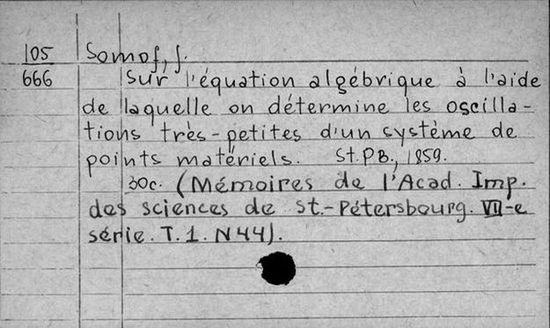 105 Somof, J.
666 Sur l'équation algébrique à l'aide
de laquelle on détermine les oscilla-
tions très-petites d'un système de
points matériels. St.PB., 1859.
30c. (Mémoires de l'Acad. Imp.
des sciences de St.-Pétersbourg. VII-e
série. T. 1. N 44).